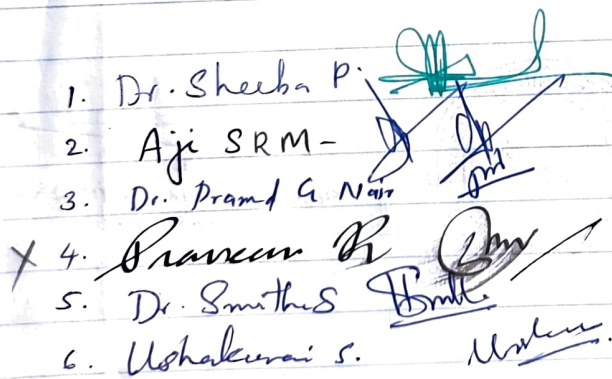 1. Dr. Sheeba P.
2. Aji SRM-
3. Dr. Pramd G Nair
X 4. Praveen R
5. Dr. Smitha S
6. Ushakumari S.